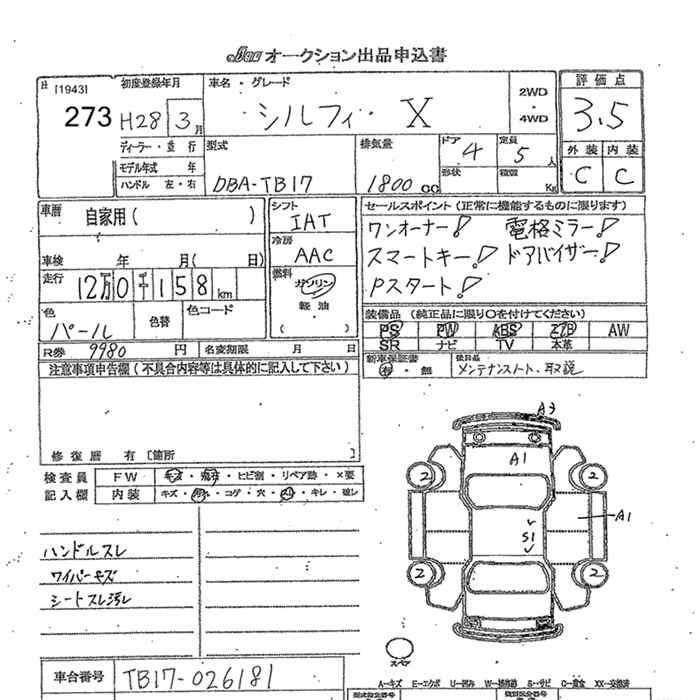 JAA オークション出品申込書
[1943]
273
初度登録年月
H28 3月
車名・グレード
シルフィ X
2WD・4WD
評価点
3.5
ディーラー・並行
モデル年式 年
ハンドル 左・右
型式
DBA-TB17
排気量
1800cc
ドア 4
形状
定員 5人
積載 Kg
外装 内装
C C
車歴 自家用( )
車検 年 月( 日)
走行 12万0千158km
色 パール
色替
色コード
シフト
IAT
冷房
AAC
燃料
ガソリン
軽油
( )
セールスポイント(正常に機能するものに限ります)
ワンオーナー! 電格ミラー!
スマートキー! ドアバイザー!
Pスタート!
装備品(純正品に限り○を付けてください)
PS PW ABS エアB AW
SR ナビ TV 本革
R券 9980 円 名変期限 月 日
新車保証書
有・無
後日品
メンテナンスノート、取説
注意事項申告欄(不具合内容等は具体的に記入して下さい)
修復歴 有[箇所 ]
検査員 FW キズ・飛石・ヒビ割・リペア跡・×要
記入欄 内装 キズ・汚れ・コゲ・穴・スレ・キレ・破レ
ハンドルスレ
ワイパーキズ
シートスレ汚レ
A3
A1
2 2
S1
A1
2 2
スペア
車台番号 TB17-026181
A―キズ E―エクボ U―凹み W―補修跡 S―サビ C―腐食 XX―交換済